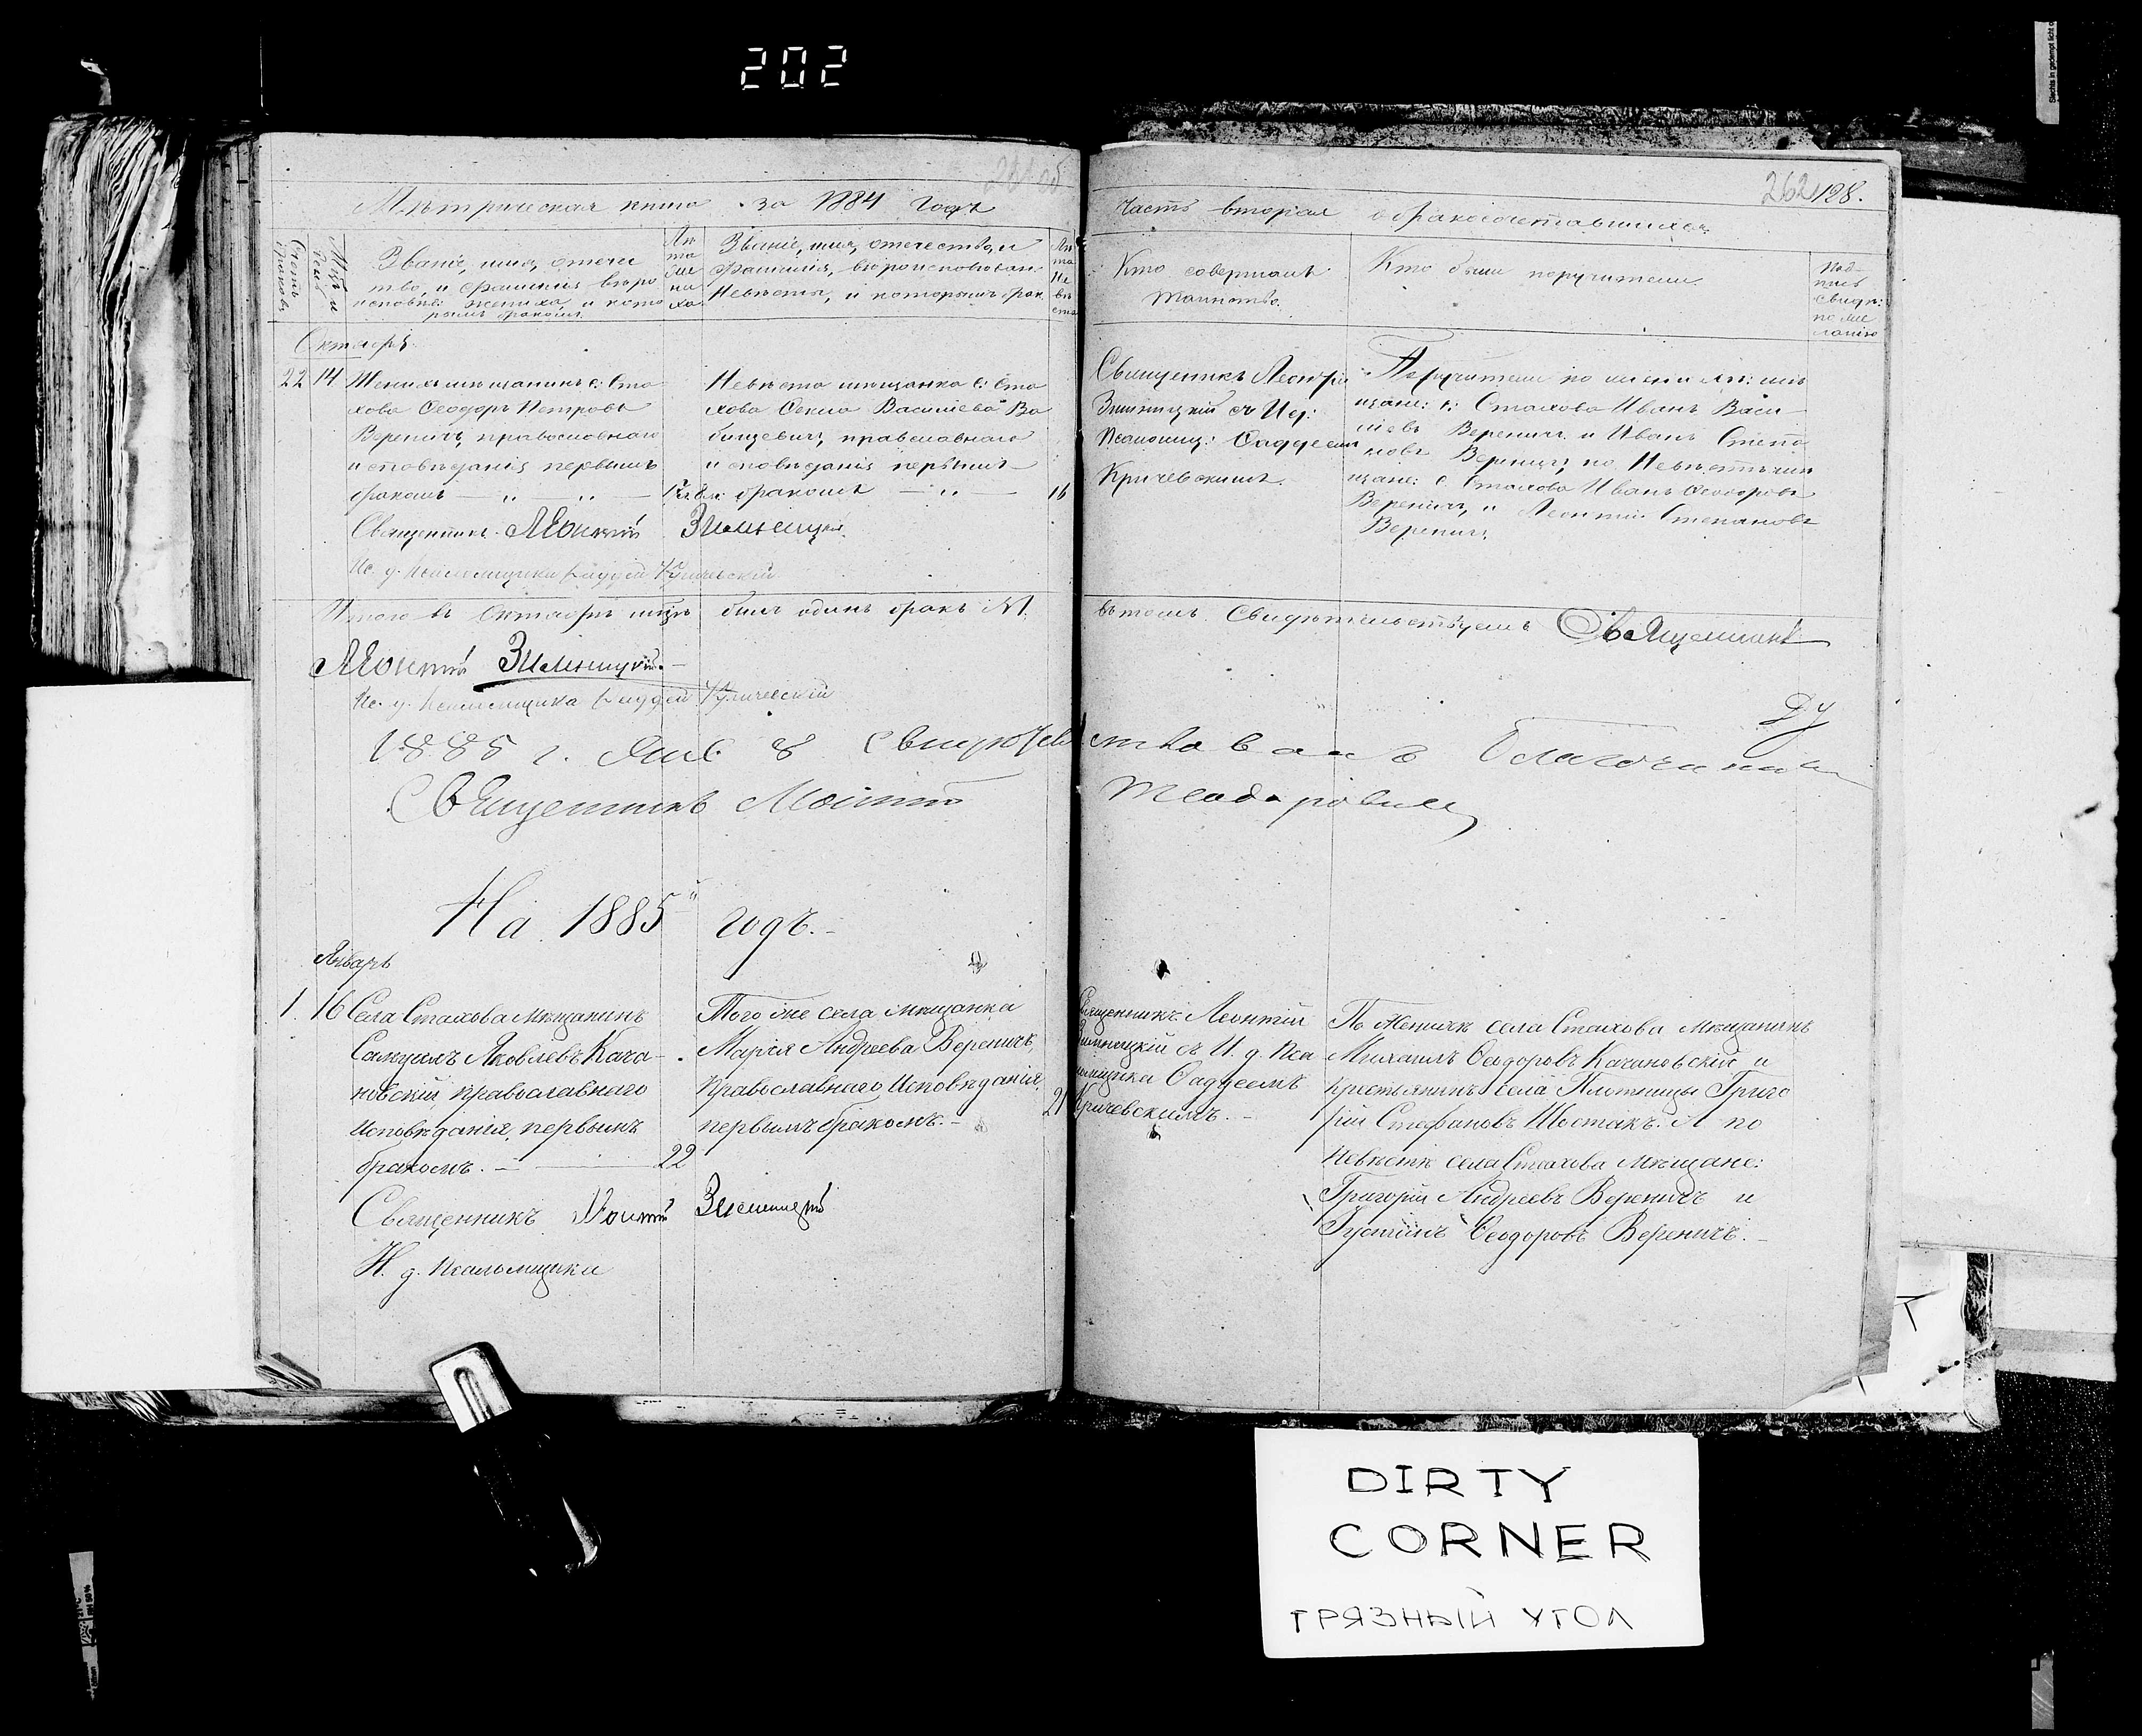 202
262 128.
Метрическая книга за 1884 годъ
Часть вторая о бракосочетавшихся
Счетъ браковъ
Мѣс. и день
Званіе, имя, отече
тво, и фамилія вѣро
исповѣд: жениха, и кото
рымъ бракомъ.
Лѣ
та
же
ни
ха
Званіе, имя, отечество, и
фамилія, вѣроисповѣдан:
Невѣсты, и которымъ брак.
Лѣ
та
Не
вѣ
сты
Кто совершалъ
таинство.
Кто были поручители
Под-
пись
свидѣ:
по же
ланію
Октябрь
22 14 Женихъ мѣщанинъ с: Ста
хова Ѳеодоръ Петровъ
Вереничъ, православнаго
исповѣданія первымъ
бракомъ — „ — „ —
Священникъ Леонтій Зимницкій
Ис. д. псаломщика Ѳаддей Кричевскій
Невѣста мѣщанка с: Ста
хова Васильева Ва
православнаго
исповѣданія первымъ
бракомъ — „ — 16
Священникъ Леонтій
Зимницкій съ И. д.:
Псаломщ: Ѳаддеем
Кричевскимъ.
Поручители по мѣ
щане: с: Стахова Иванъ Васи-
льевъ Вереничъ и Иванъ Степа
новъ Вереничъ, по Невѣстѣ мѣ
щане: с. Стахова Иванъ Ѳеодоровъ
Вереничъ, и Леонтій Степановъ
Вереничъ
Итого въ Октябрѣ мѣсяцѣ былъ одинъ бракъ №1.
въ томъ свидѣтельствуемъ Священникъ
Леонтій Зимницкій.
Ис. д. псаломщика Ѳаддей Кричевскій
1885 г. Янв. 8 свидѣтельствовалъ Благочинный
Священникъ Теодоровичъ
На 1885й годъ.
Январь
1. 16 Села Стахова Мѣщанинъ
Самуилъ Яковлевъ Кача-
новскій, православнаго
исповѣданія, первымъ
бракомъ. — 22
Священникъ Леонтій Зимницкій
И. д. псаломщика
Того же села мѣщанка
Марія Андреева Вереничъ,
православнаго исповѣданія,
первымъ бракомъ. 21
Священникъ Леонтій
Зимницкій съ И. д. Пса
ломщика Ѳаддеемъ
Кричевскимъ.
По Женихѣ села Стахова мѣщанинъ
Михаилъ Ѳеодоровъ Качановскій и
крестьянинъ села Плотницы Григо
рій Стефановъ Шостакъ. А по
Невѣстѣ села Стахова мѣщане:
Григорій Андреевъ Вереничъ и
Густинъ Ѳеодоровъ Вереничъ.
DIRTY
CORNER
ГРЯЗНЫЙ УГОЛ